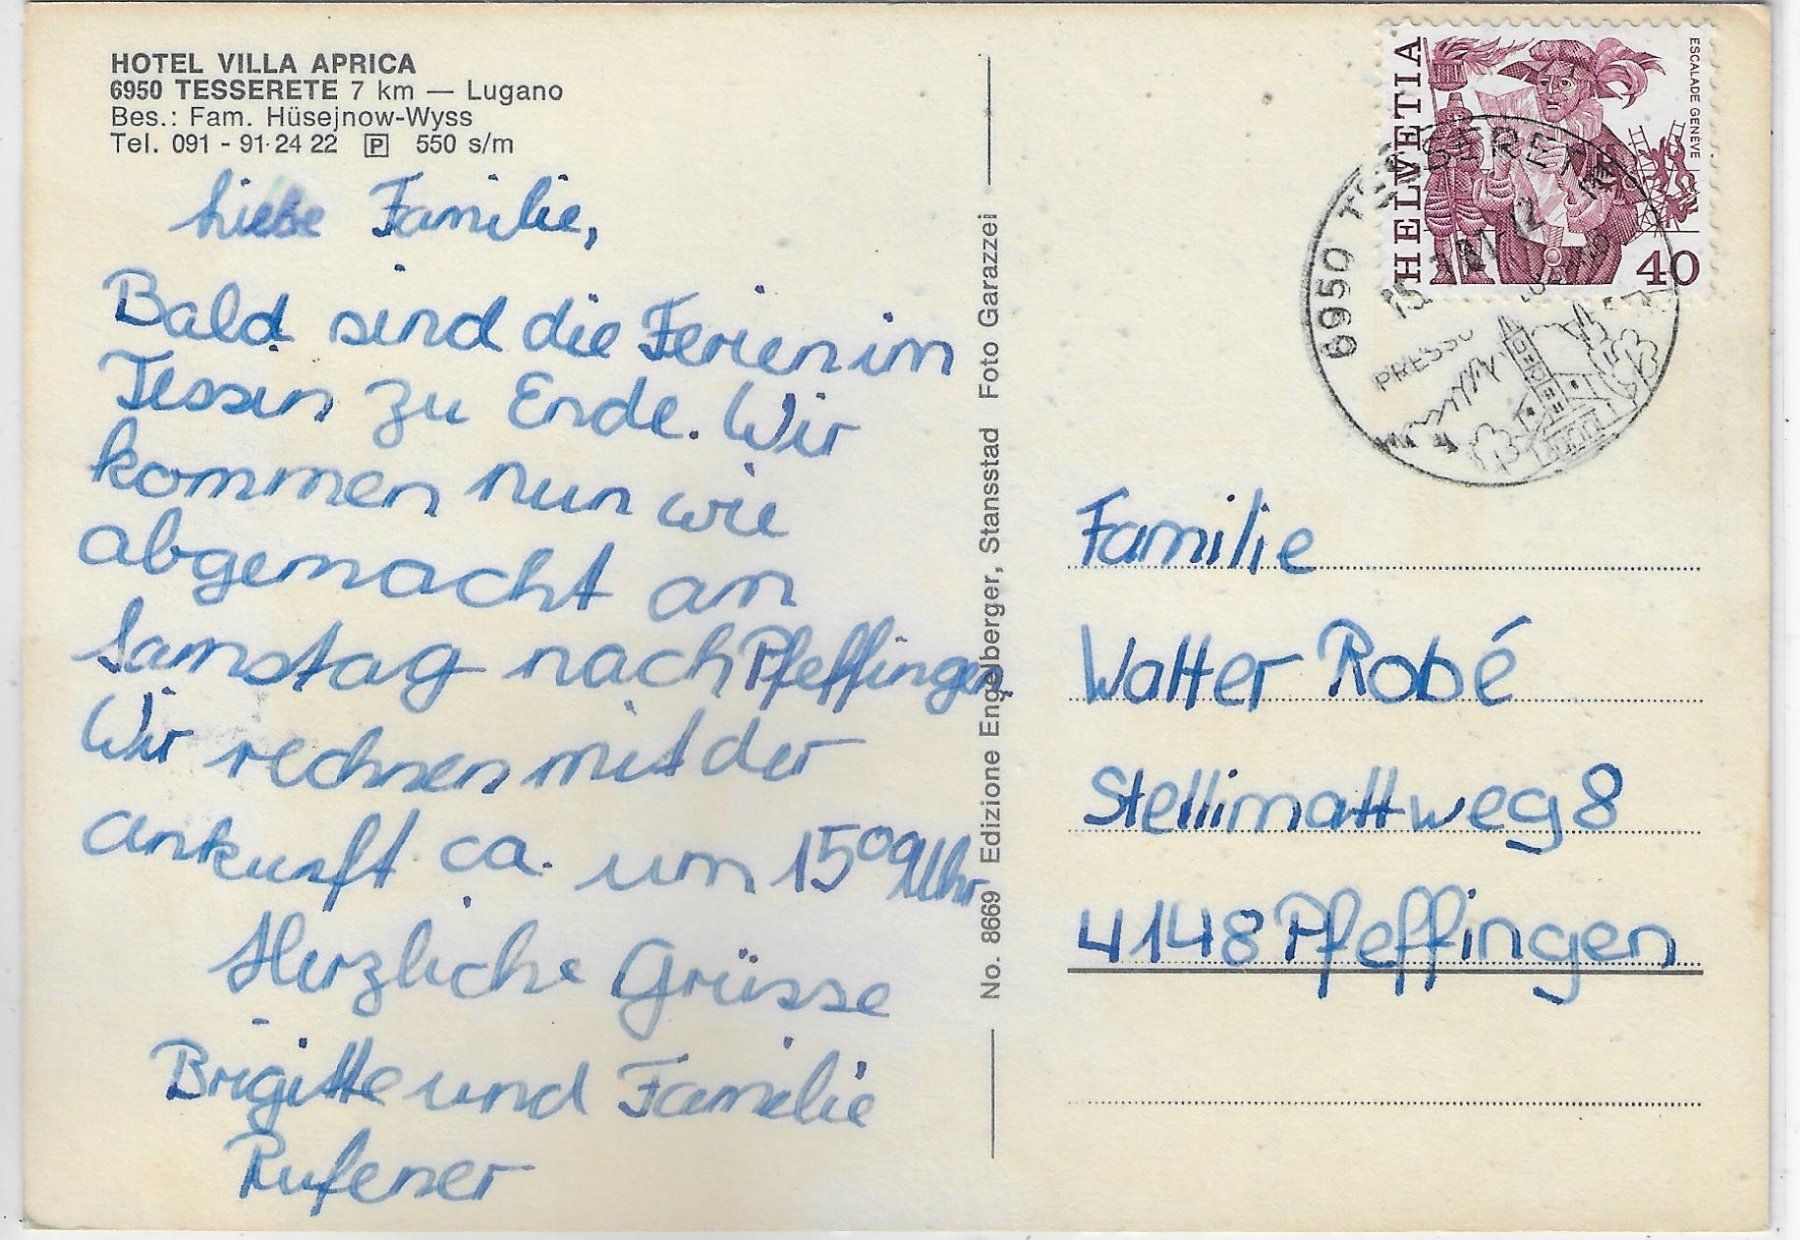 HOTEL VILLA APRICA
6950 TESSERETE 7 km — Lugano
Bes.: Fam. Hüsejnow-Wyss
Tel. 091 - 91·24 22 P 550 s/m
Liebe Familie,
Bald sind die Ferien im
Tessin zu Ende. Wir
kommen nun wie
abgemacht an
Samstag nach Pfeffingen
Wir rechnen mit der
ankunft ca. um 15⁰⁰ Uhr
Herzliche Grüsse
Brigitte und Familie
Rufener
No. 8669 Edizione Engelberger, Stansstad Foto Garazzei
HELVETIA
ESCALADE GENÈVE
40
6950 TESSERETE
PRESSO
Familie
Walter Robé
Stellimattweg 8
4148 Pfeffingen